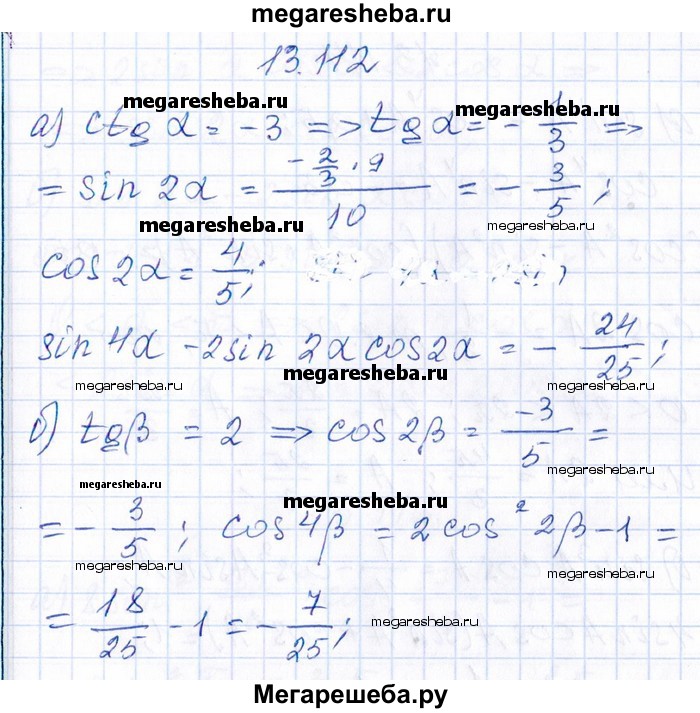 megaresheba.ru
13.112
megaresheba.ru megaresheba.ru
а) ctg α = -3 => tg α = - 1/3 =>
= sin 2α = (-2/3 · 9)/10 = - 3/5 ;
megaresheba.ru megaresheba.ru
cos 2α = 4/5 ;
sin 4α - 2 sin 2α cos 2α = - 24/25 ;
megaresheba.ru megaresheba.ru megaresheba.ru
б) tg β = 2 => cos 2β = -3/5 =
megaresheba.ru
megaresheba.ru megaresheba.ru
= - 3/5 ; cos 4β = 2 cos² 2β - 1 =
megaresheba.ru megaresheba.ru
= 18/25 - 1 = - 7/25 ;
megaresheba.ru
megaresheba.ru
Мегарешеба.ру